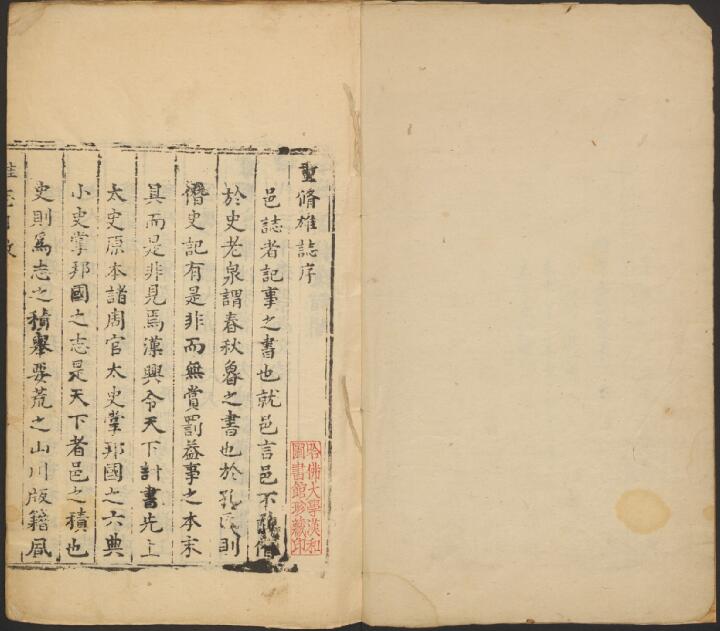 重脩雄誌序
邑誌者記事之書也就邑言邑不僭
於史老泉謂春秋魯之書也於孔氏則
僭史記有是非而無賞罰葢事之本末
具而是非見焉漢興令天下計書先上
太史原本諸周官太史掌邦國之六典
小史掌邦國之志是天下者邑之積也
史則爲志之積舉要荒之山川版籍風
哈佛大學漢和
圖書館珍藏印